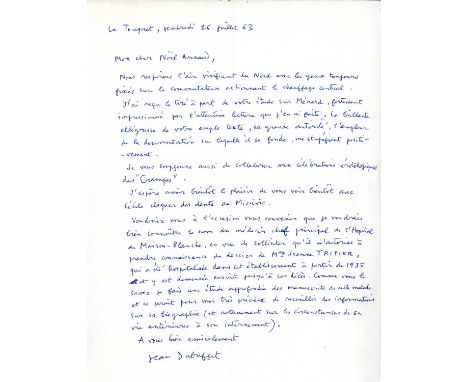 Le Touquet, vendredi 26 juillet 63
Mon cher Noël Arnaud,
Nous respirons l'air vivifiant du Nord avec les yeux toujours
fixés sur le commutateur actionnant le chauffage central.
J'ai reçu le tiré à part de votre étude sur Ménard, fortement
impressionné par l'attentive lecture que j'en ai faite, la brillante
allégresse de votre ample texte, sa grande autorité, l'ampleur
de la documentation sur laquelle il se fonde, me stupéfient positi-
vement.
Je vous soupçonne aussi de collaborer aux célébrations
des "Crampes".
J'espère avoir bientôt le plaisir de vous voir bientôt avec
claquer des dents au
Voudriez vous à l'occasion vous souvenir que je voudrais
bien connaître le nom du médecin chef principal de l'Hôpital
de Maison-Blanche, en vue de solliciter qu'il m'autorise à
prendre connaissance du dossier de Mme Jeanne TRIPIER,
qui a été hospitalisée dans cet établissement à partir de 1935
et y est demeurée ensuite jusqu'à son décès. Comme vous le
savez je fais une étude approfondie des manuscrits de cette malade
et ce serait pour moi très précieux de recueillir des informations
sur sa biographie (et notamment sur les circonstances de sa
vie antérieures à son internement).
A vous bien amicalement
Jean Dubuffet